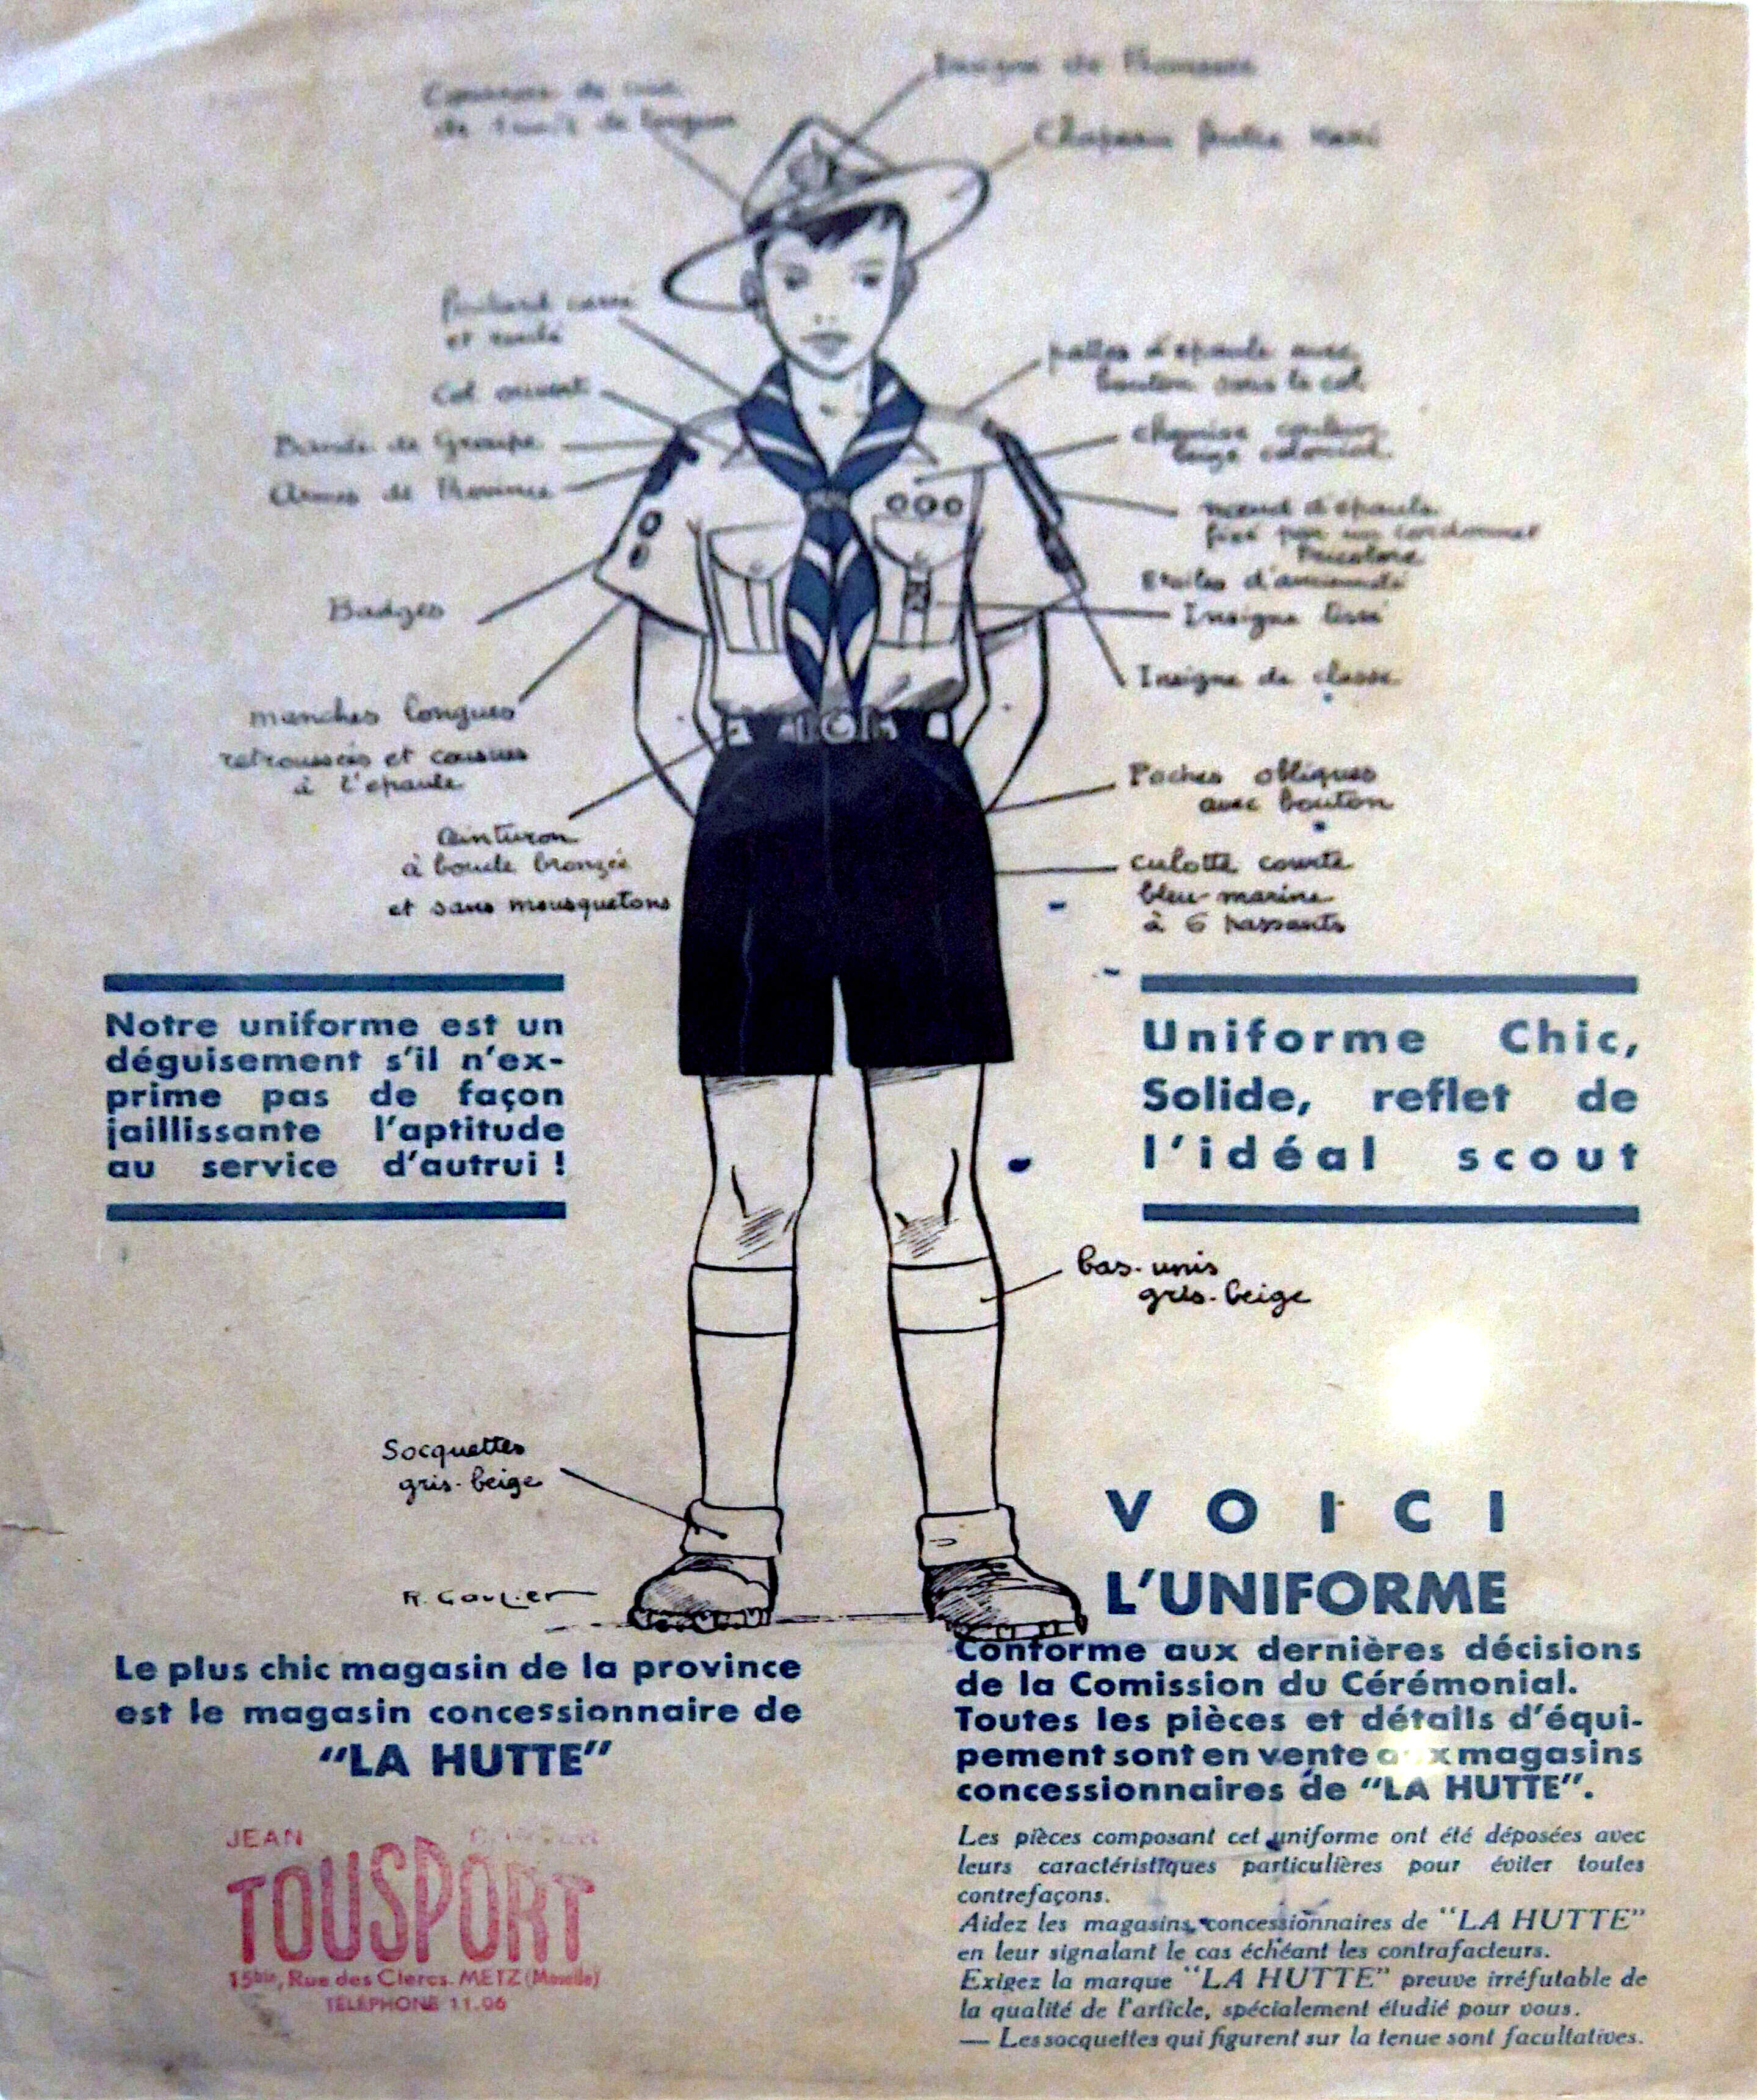 Insigne de
Chapeau feutre
foulard carré
et roulé
Col ouvert
Bande de Groupe
Armes de Province
Badges
manches longues
retroussées et cousues
à l'epaule
ceinturon
à boucle bronzée
et sans mousquetons
pattes d'epaule avec
bouton sous le col
chemise couleur
beige colonial
nœud d'epaule
fixé par un cordonnet
tricolore
Etoiles d'ancienneté
Insigne tissé
Insigne de classe
Poches obliques
avec bouton
culotte courte
bleu-marine
à 6 passants
Notre uniforme est un
déguisement s'il n'ex-
prime pas de façon
jaillissante l'aptitude
au service d'autrui !
Uniforme Chic,
Solide, reflet de
l'idéal scout
bas-unis
gris-beige
Socquettes
gris-beige
VOICI
L'UNIFORME
Conforme aux dernières décisions
de la Comission du Cérémonial.
Toutes les pièces et détails d'équi-
pement sont en vente aux magasins
concessionnaires de "LA HUTTE".
Les pièces composant cet uniforme ont été déposées avec
leurs caractéristiques particulières pour éviter toutes
contrefaçons.
Aidez les magasins concessionnaires de "LA HUTTE"
en leur signalant le cas échéant les contrafacteurs.
Exigez la marque "LA HUTTE" preuve irréfutable de
la qualité de l'article, spécialement étudié pour vous.
— Les socquettes qui figurent sur la tenue sont facultatives.
Le plus chic magasin de la province
est le magasin concessionnaire de
"LA HUTTE"
JEAN
TOUSPORT
15bis, Rue des Clercs. METZ (Moselle)
TÉLÉPHONE 11.06